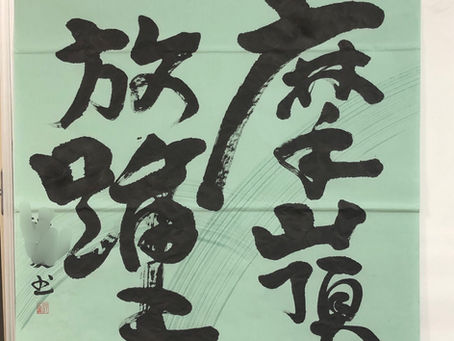 摩頂
放踵
書